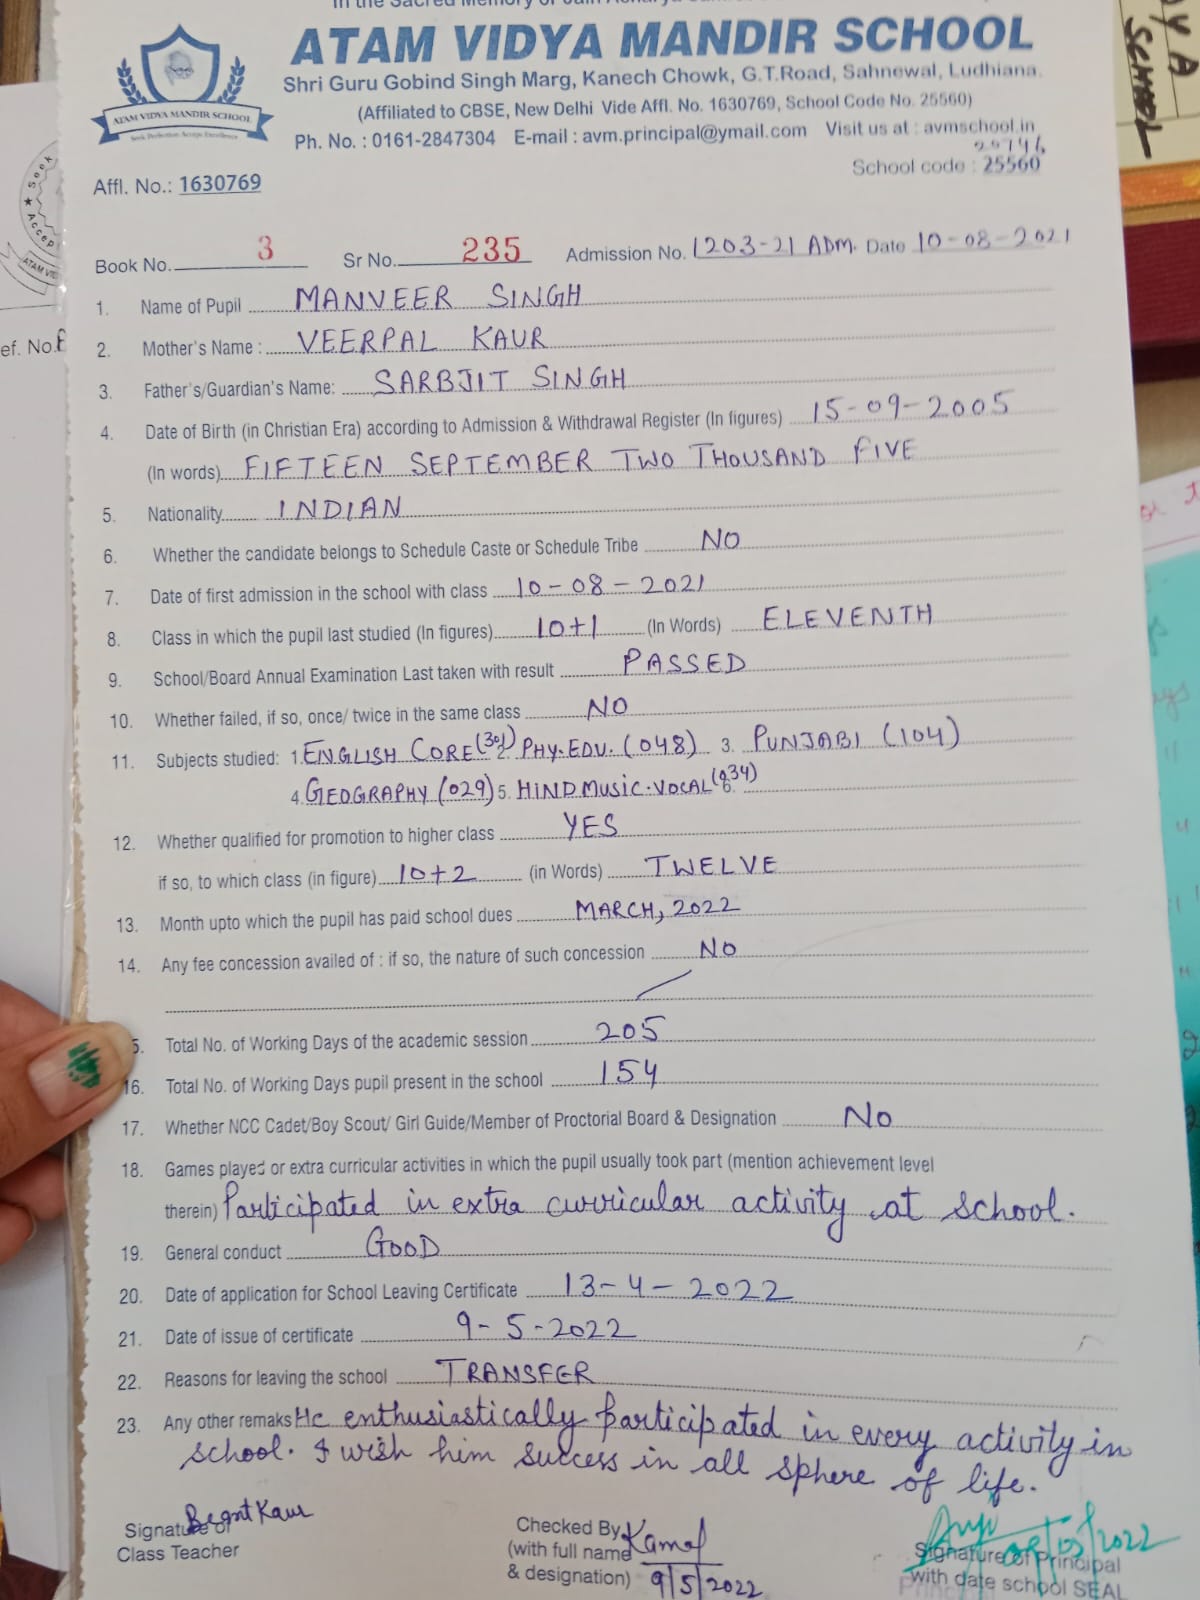 In the Sacred Memory of Jain Acharya
ATAM VIDYA MANDIR SCHOOL
Shri Guru Gobind Singh Marg, Kanech Chowk, G.T.Road, Sahnewal, Ludhiana.
(Affiliated to CBSE, New Delhi Vide Affl. No. 1630769, School Code No. 25560)
Ph. No. : 0161-2847304 E-mail : avm.principal@ymail.com Visit us at : avmschool.in
ATAM VIDYA MANDIR SCHOOL
Seek Perfection Accept Excellence
School code : 25560
Affl. No.: 1630769
Book No. 3 Sr No. 235 Admission No. 1203-21 ADM. Date 10-08-2021
1. Name of Pupil MANVEER SINGH
2. Mother's Name : VEERPAL KAUR
3. Father's/Guardian's Name: SARBJIT SINGH
4. Date of Birth (in Christian Era) according to Admission & Withdrawal Register (In figures) 15-09-2005
(In words) FIFTEEN SEPTEMBER TWO THOUSAND FIVE
5. Nationality INDIAN
6. Whether the candidate belongs to Schedule Caste or Schedule Tribe NO
7. Date of first admission in the school with class 10-08-2021
8. Class in which the pupil last studied (In figures) 10+1 (In Words) ELEVENTH
9. School/Board Annual Examination Last taken with result PASSED
10. Whether failed, if so, once/ twice in the same class NO
11. Subjects studied: 1. ENGLISH CORE (301) 2. PHY.EDU. (048) 3. PUNJABI (104)
4. GEOGRAPHY (029) 5. HIND MUSIC.VOCAL (034) 6.
12. Whether qualified for promotion to higher class YES
if so, to which class (in figure) 10+2 (in Words) TWELVE
13. Month upto which the pupil has paid school dues MARCH, 2022
14. Any fee concession availed of : if so, the nature of such concession NO
5. Total No. of Working Days of the academic session 205
16. Total No. of Working Days pupil present in the school 154
17. Whether NCC Cadet/Boy Scout/ Girl Guide/Member of Proctorial Board & Designation No
18. Games played or extra curricular activities in which the pupil usually took part (mention achievement level
therein) Participated in extra curricular activity at school.
19. General conduct GOOD
20. Date of application for School Leaving Certificate 13-4-2022
21. Date of issue of certificate 9-5-2022
22. Reasons for leaving the school TRANSFER
23. Any other remaks He enthusiastically participated in every activity in
school. I wish him success in all sphere of life.
Signature of Beant Kaur
Class Teacher
Checked By Kamal
(with full name
& designation) 9/5/2022
Signature of Principal
with date school SEAL
ef. No.
SCHOOL